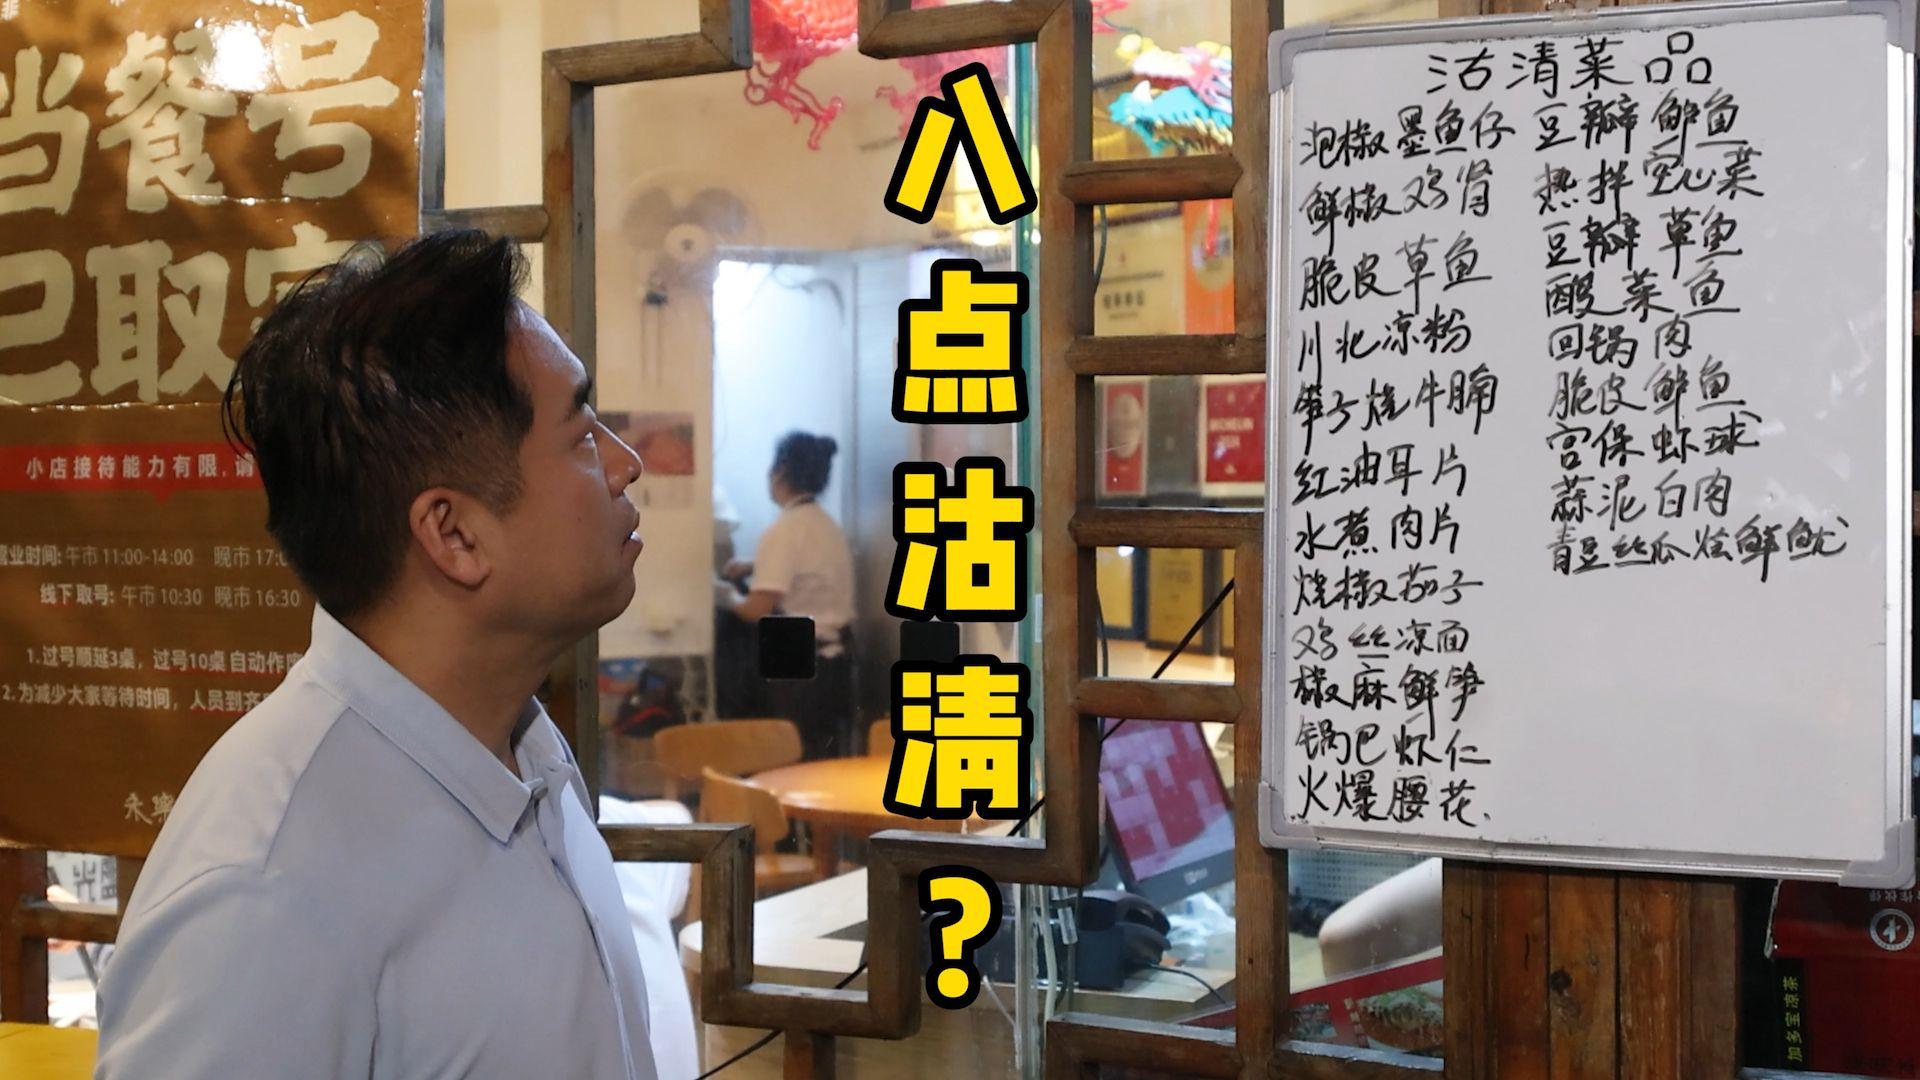 当餐号
已取完
小店接待能力有限,请
营业时间:午市 11:00-14:00 晚市 17:0
线下取号:午市 10:30 晚市 16:30
1.过号顺延3桌,过号10桌自动作废
2.为减少大家等待时间,人员到齐
永樂
八点沽清?
沽清菜品
泡椒墨鱼仔
鲜椒鸡肾
脆皮草鱼
川北凉粉
笋子烧牛腩
红油耳片
水煮肉片
烧椒茄子
鸡丝凉面
椒麻鲜笋
锅巴虾仁
火爆腰花.
豆瓣鲈鱼
热拌空心菜
豆瓣草鱼
酸菜鱼
回锅肉
脆皮鲈鱼
宫保虾球
蒜泥白肉
青豆丝瓜烩鲜鱿
MICHELIN
加多宝凉茶